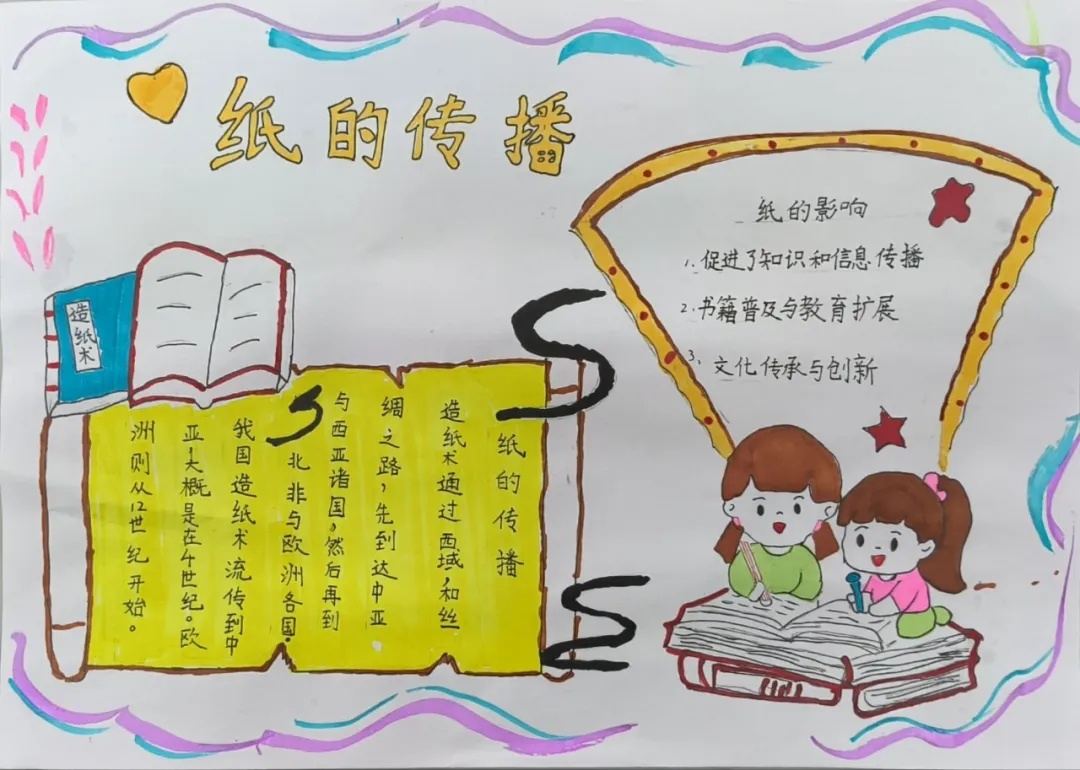 纸的传播
造纸术
纸的传播
造纸术通过西域和丝
绸之路,先到达中亚
与西亚诸国,然后再到
北非与欧洲各国.
我国造纸术流传到中
亚大概是在4世纪。欧
洲则从12世纪开始。
纸的影响
1.促进了知识和信息传播
2.书籍普及与教育扩展
3、文化传承与创新